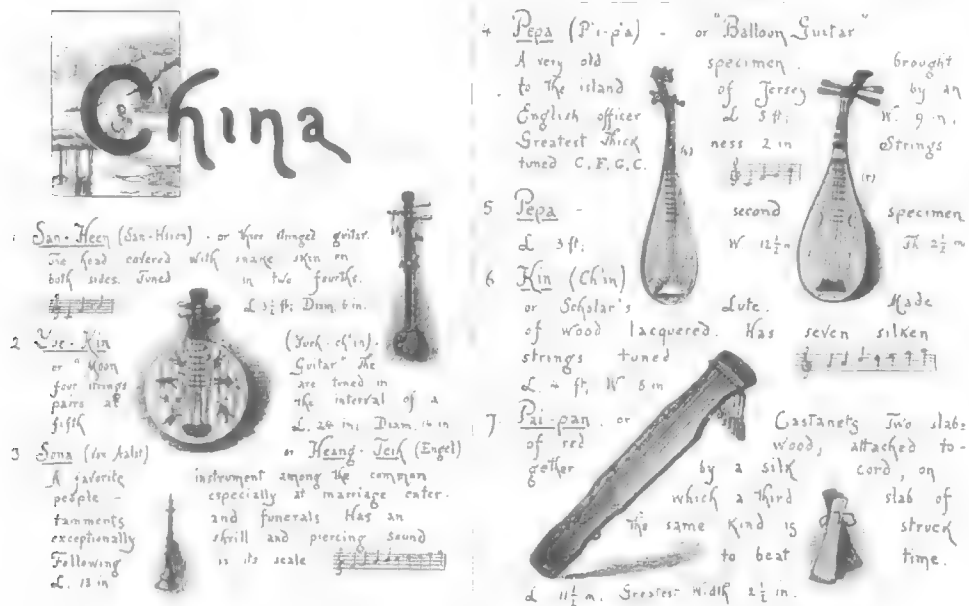 China
1 San-Heen (San-Hsien) - or three stringed guitar.
The head covered with snake skin on
both sides. Tuned in two fourths.
L 3½ ft; Diam. 6 in.
2 Yue-Kin (Yueh-ch'in) -
or "Moon Guitar" The
four strings are tuned in
pairs at the interval of a
fifth L. 24 in; Diam. 14 in
3 Sona (Van Aalst) or Heang-Teih (Engel)
A favorite instrument among the common
people - especially at marriage enter-
tainments and funerals Has an
exceptionally shrill and piercing sound
Following is its scale
L. 13 in
4 Pepa (P'i-p'a) - or "Balloon Guitar"
A very old specimen brought
to the island of Jersey by an
English officer L 3 ft; W. 9 in,
Greatest Thick ness 2 in Strings
tuned C, F, G, C.
5 Pepa - second specimen
L 3 ft; W 12½ in Th 2½ in
6 Kin (Ch'in)
or Scholar's Lute. Made
of wood lacquered. Has seven silken
strings tuned
L. 4 ft, W 8 in
7 Pai-pan. or Castanets Two slabs
of red wood, attached to-
gether by a silk cord, on
which a third slab of
the same kind is struck
to beat time.
L 11½ in. Greatest Width 2½ in.